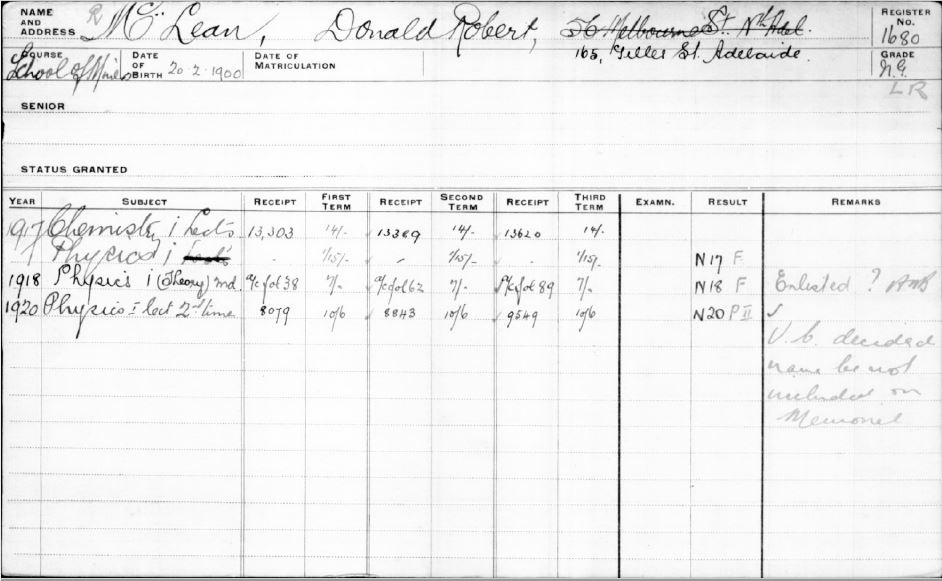 NAME AND ADDRESS R McLean, Donald Robert, Melbourne St. Nth Adel. REGISTER No. 1680
165, Gilles St. Adelaide.
COURSE School of Mines DATE OF BIRTH 20-2-1900 DATE OF MATRICULATION GRADE N.G.
LR
SENIOR
STATUS GRANTED
YEAR SUBJECT RECEIPT FIRST TERM RECEIPT SECOND TERM RECEIPT THIRD TERM EXAMN. RESULT REMARKS
1917 Chemistry i Lects 13,303 14/- 13389 14/- 13620 14/-
Physics i 1/15/- 1/15/- 1/15/- N17 F
1918 Physics i (Theory) a/c fol 38 7/- a/c fol 62 7/- a/c fol 89 7/- N18 F Enlisted ?
1920 Physics I lect 2nd time 8079 10/6 8843 10/6 9549 10/6 N20 P II ✓
decided
name be not
included on
Memorial